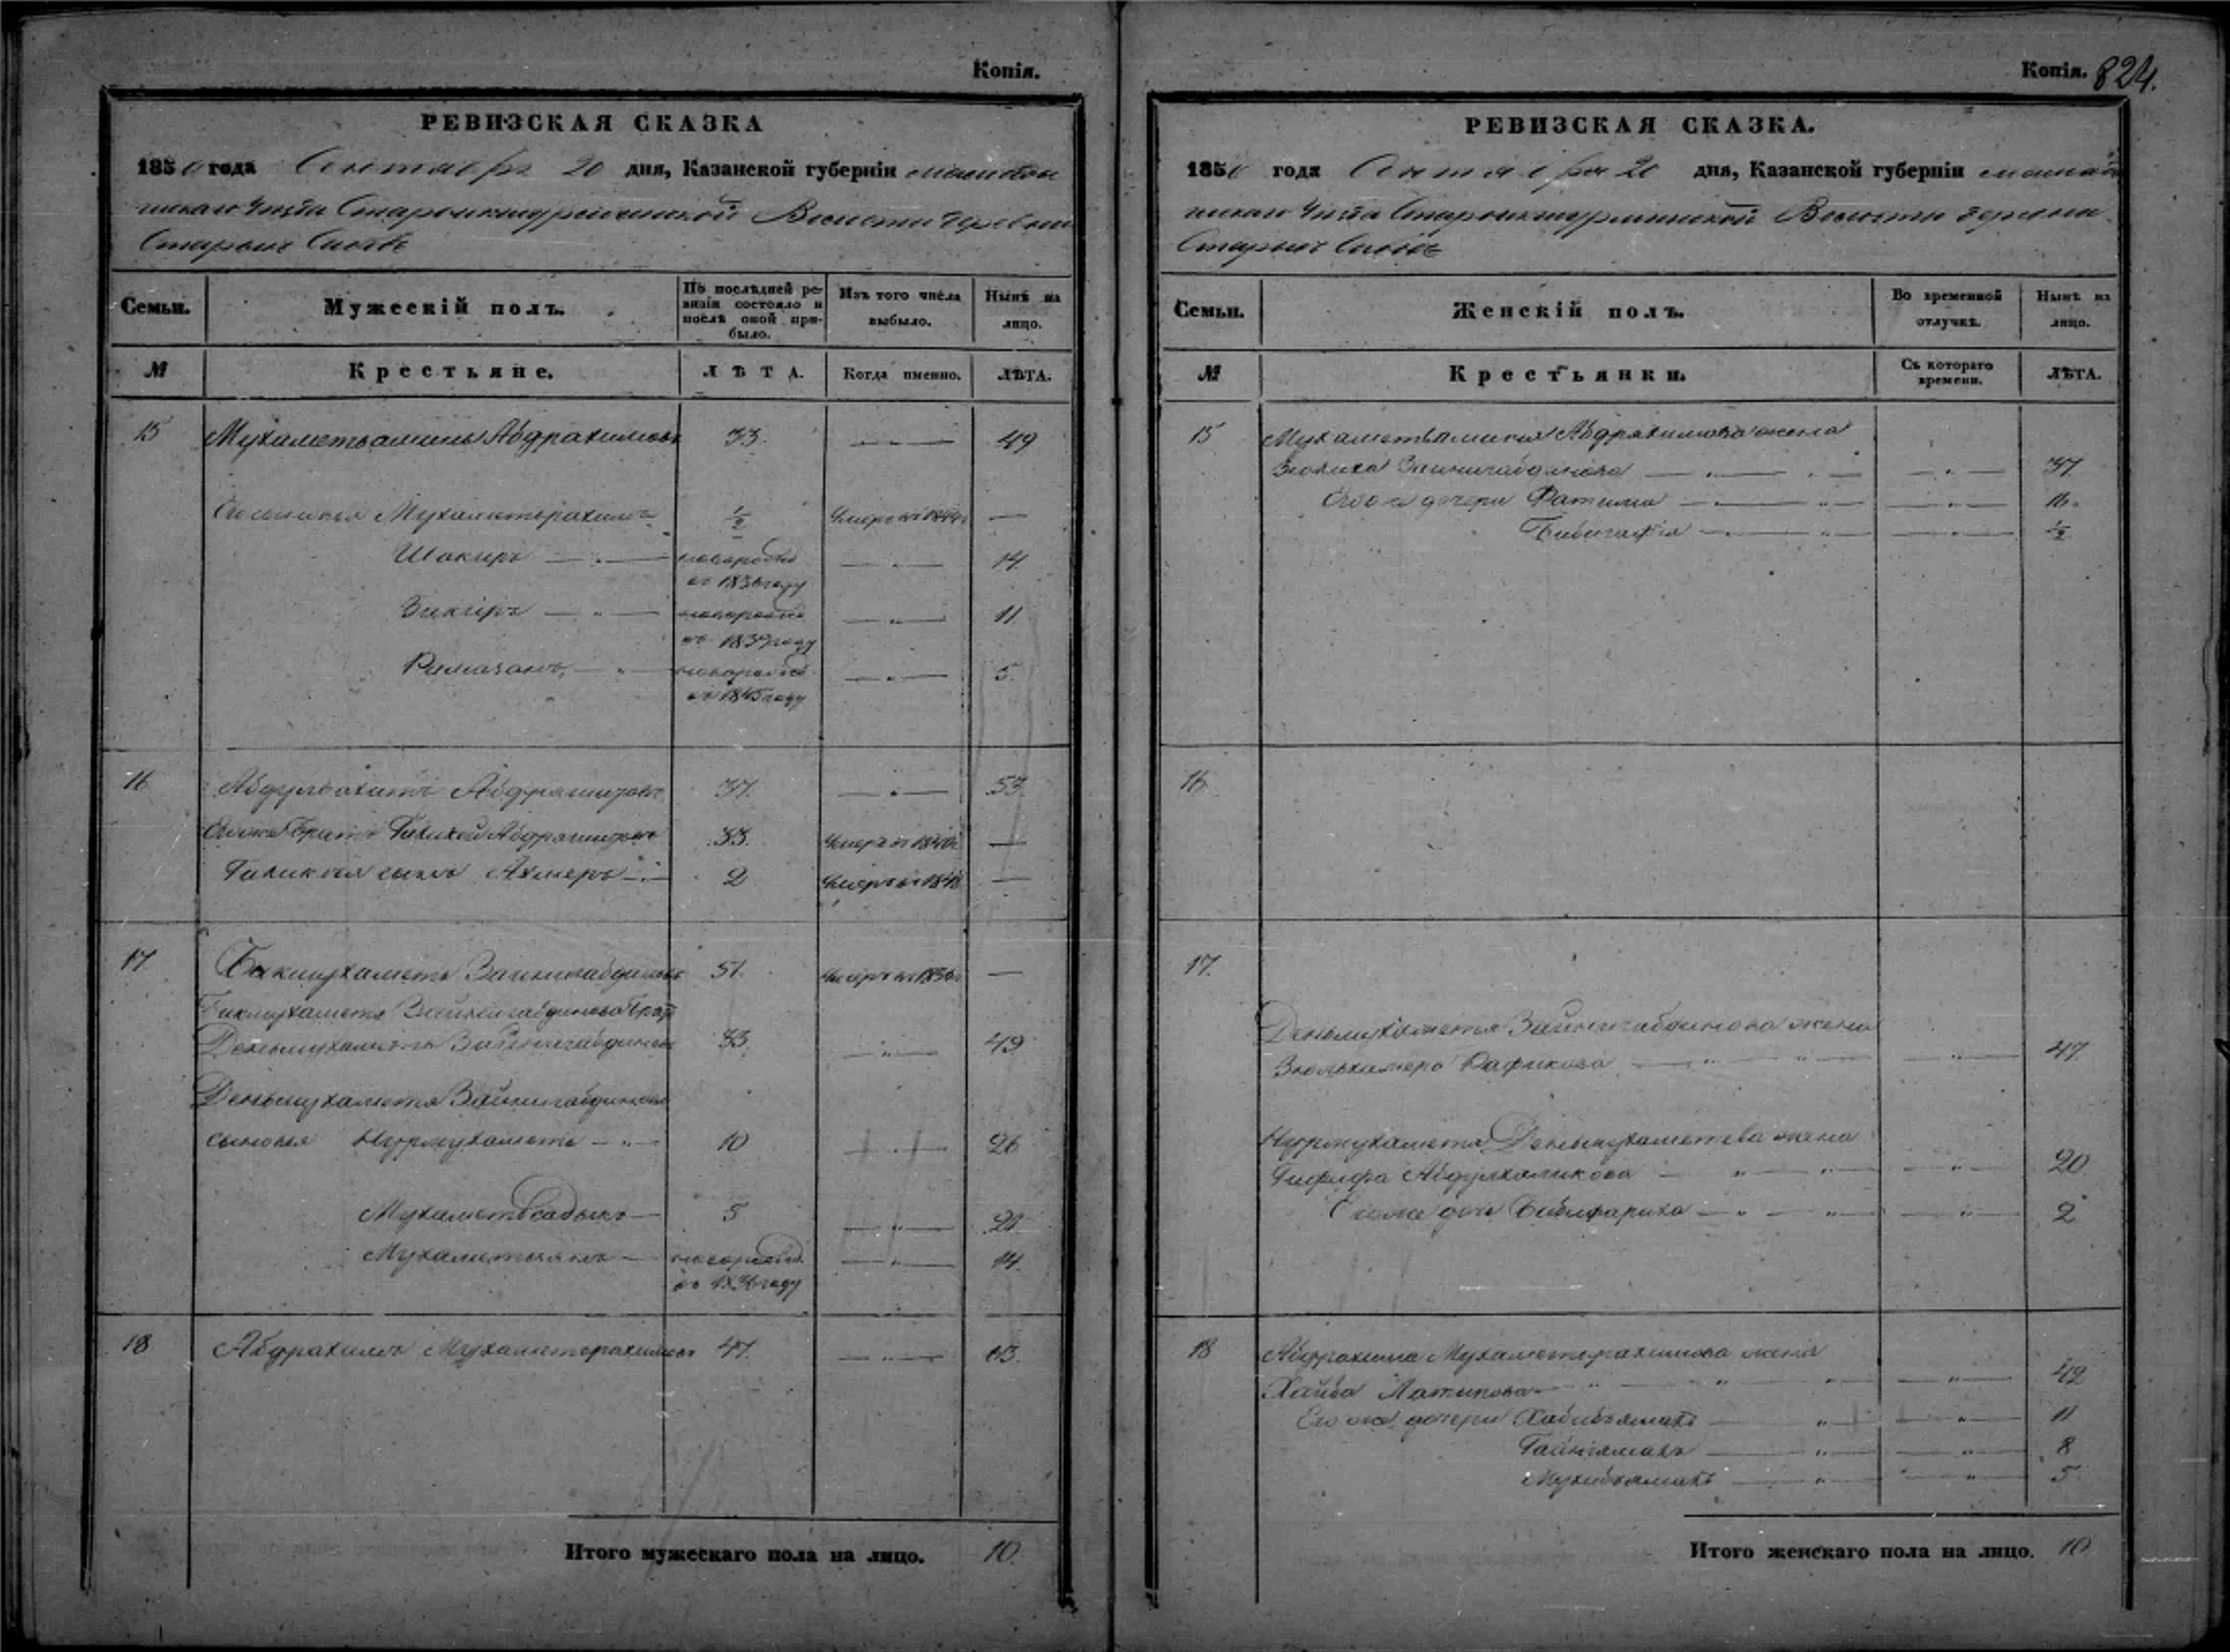 Копія.
РЕВИЗСКАЯ СКАЗКА
1850 года Сентября 20 дня, Казанской губерніи мамадыш
скаго Уезда Волости деревни
Старыхъ
Семьи.
Мужескій полъ.
По послѣдней ре-
визіи состояло и
послѣ оной при-
было.
Изъ того числа
выбыло.
Нынѣ на
лицо.
№
Крестьяне.
ЛѢТА.
Когда именно.
ЛѢТА.
15 Мухаметьаминь Абдрахимовъ 33. 49
Его сыновья Мухаметърахимъ 1/2 Умеръ въ —
Шакиръ новорожд 14.
въ 1836 году
Зикіръ новорожд 11
въ 1839 году
Рамазанъ новорожд 5.
въ 1845 году
16 Абдрашитовъ 37. 53.
Его же братъ Абдрашитовъ 33. Умеръ въ —
сынъ 2 Умеръ въ —
17 Бикмухаметь Зайнигабдиновъ 51. Умеръ въ —
Бикмухаметя Зайнигабдинова братъ
Деньмухаметь Зайнигабдиновъ 33. 49
Деньмухаметя Зайнигабдинова
сыновья Нурмухаметь 10 26
Мухаметьсадыкъ 5 21
Мухаметьянъ новорожд 14.
въ 1836 году
18 Абдрахимъ Мухаметърахимовъ 47. 63.
Итого мужескаго пола на лицо. 10.
Копія. 824.
РЕВИЗСКАЯ СКАЗКА.
1850 года Сентября 20 дня, Казанской губерніи мамадыш
скаго Уезда Волости деревни
Старыхъ
Семьи.
Женскій полъ.
Во временной
отлучкѣ.
Нынѣ на
лицо.
№
Крестьянки.
Съ котораго
времени.
ЛѢТА.
15 Мухаметьаминя Абдрахимова жена
Зюлиха Зайнигабдинова 37
Его же дочери Фатима 16.
1/2
16.
17.
Деньмухаметя Зайнигабдинова жена
Рафикова 47.
Нурмухаметя Деньмухаметева жена
Абдулхаликова 20
Его же дочь 2
18 Абдрахима Мухаметърахимова жена
Латыпова 42
Его же дочери Хабибъямалъ 11
Гайніямалъ 8
Мухибъямалъ 5.
Итого женскаго пола на лицо. 10